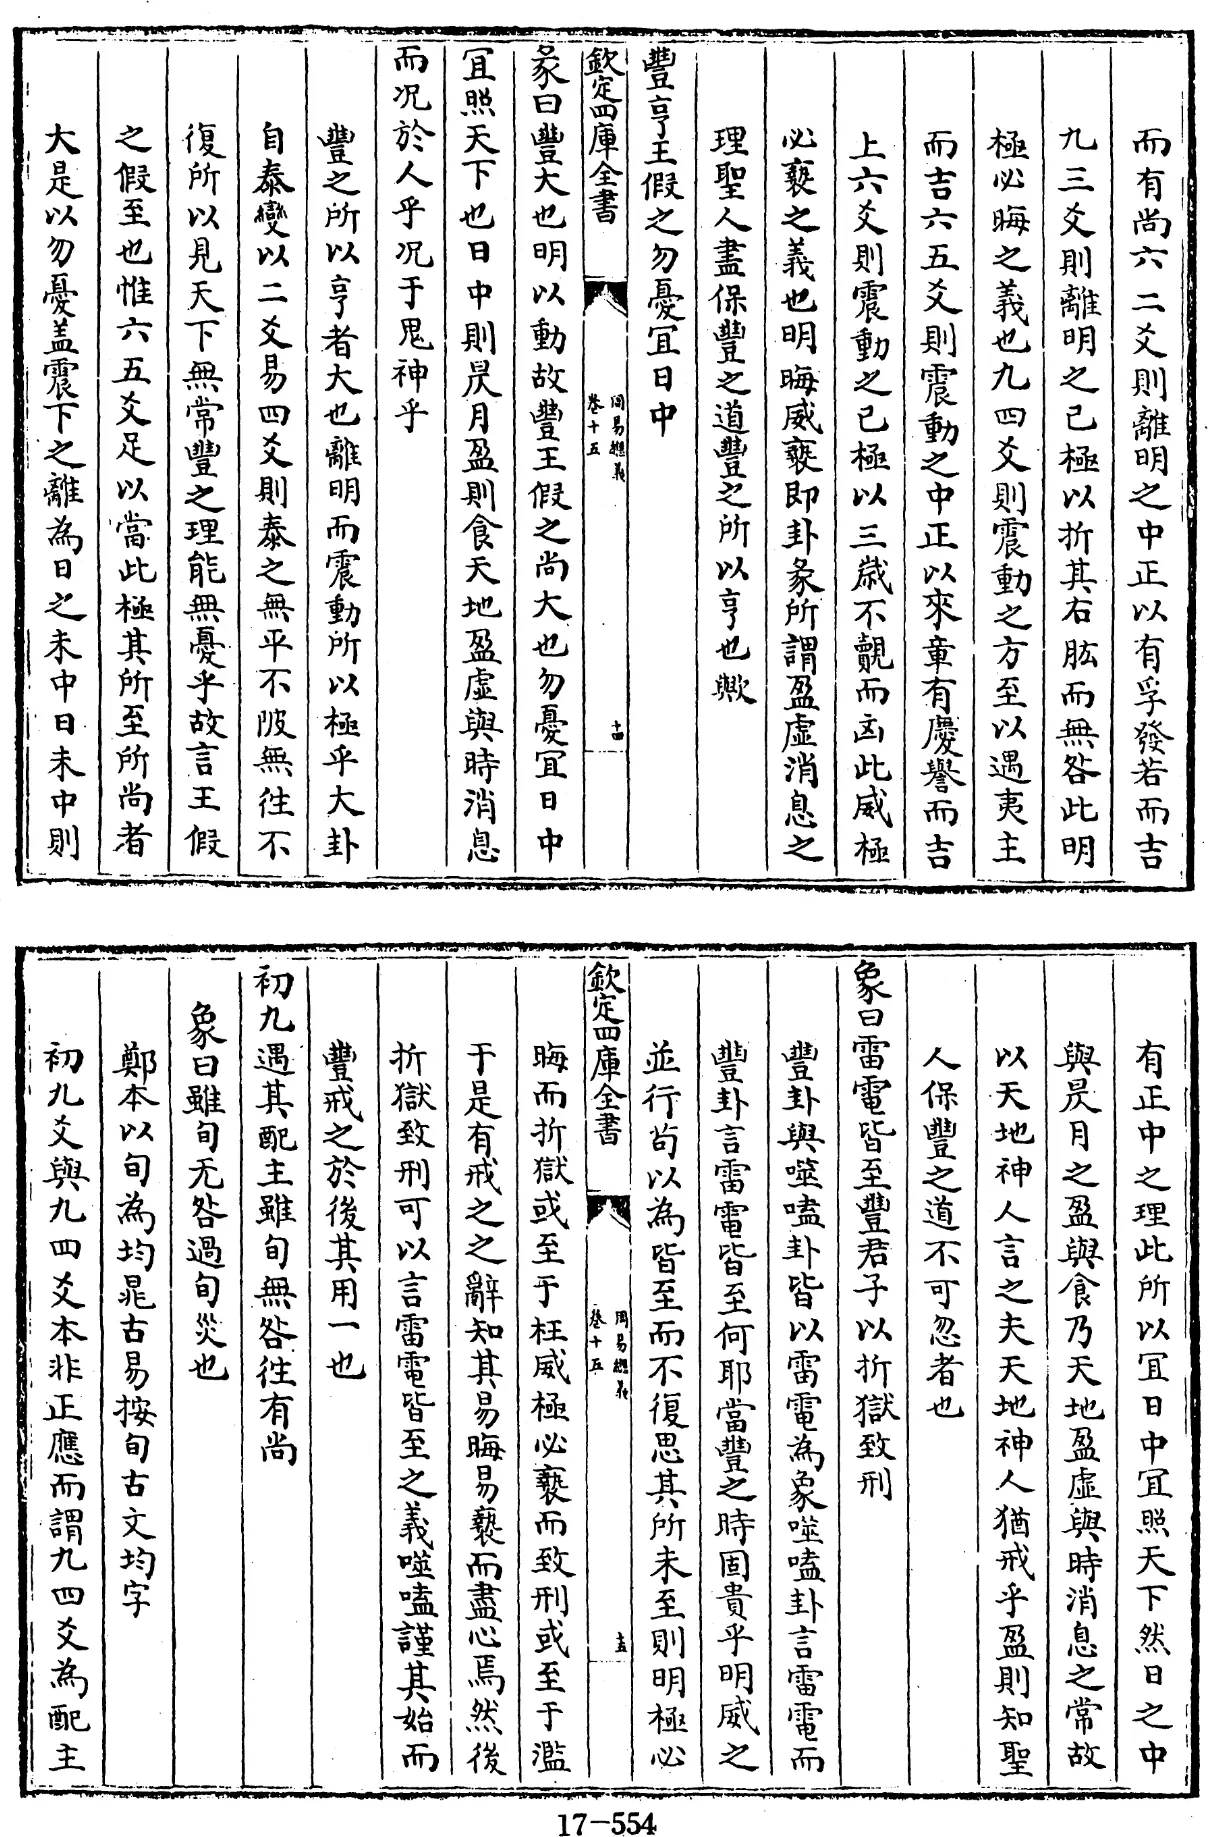 而有尚六二爻則離明之中正以有孚發若而吉
九三爻則離明之已極以折其右肱而無咎此明
極必晦之義也九四爻則震動之方至以遇夷主
而吉六五爻則震動之中正以來章有慶譽而吉
上六爻則震動之已極以三歲不覿而凶此威極
必褻之義也明晦威褻即卦彖所謂盈虛消息之
理聖人盡保豐之道豐之所以亨也歟
豐亨王假之勿憂宜日中
欽定四庫全書
周易總義
卷十五
十四
彖曰豐大也明以動故豐王假之尚大也勿憂宜日中
宜照天下也日中則昃月盈則食天地盈虛與時消息
而況於人乎況于鬼神乎
豐之所以亨者大也離明而震動所以極乎大卦
自泰變以二爻易四爻則泰之無平不陂無往不
復所以見天下無常豐之理能無憂乎故言王假
之假至也惟六五爻足以當此極其所至所尚者
大是以勿憂盖震下之離為日之未中日未中則
有正中之理此所以宜日中宜照天下然日之中
與昃月之盈與食乃天地盈虛與時消息之常故
以天地神人言之夫天地神人猶戒乎盈則知聖
人保豐之道不可忽者也
象曰雷電皆至豐君子以折獄致刑
豐卦與噬嗑卦皆以雷電為象噬嗑卦言雷電而
豐卦言雷電皆至何耶當豐之時固貴乎明威之
並行茍以為皆至而不復思其所未至則明極必
欽定四庫全書
周易總義
卷十五
十五
晦而折獄或至于枉威極必褻而致刑或至于濫
于是有戒之之辭知其易晦易褻而盡心焉然後
折獄致刑可以言雷電皆至之義噬嗑謹其始而
豐戒之於後其用一也
初九遇其配主雖旬無咎往有尚
象曰雖旬无咎過旬災也
鄭本以旬為均晁古易按旬古文均字
初九爻與九四爻本非正應而謂九四爻為配主
17-554